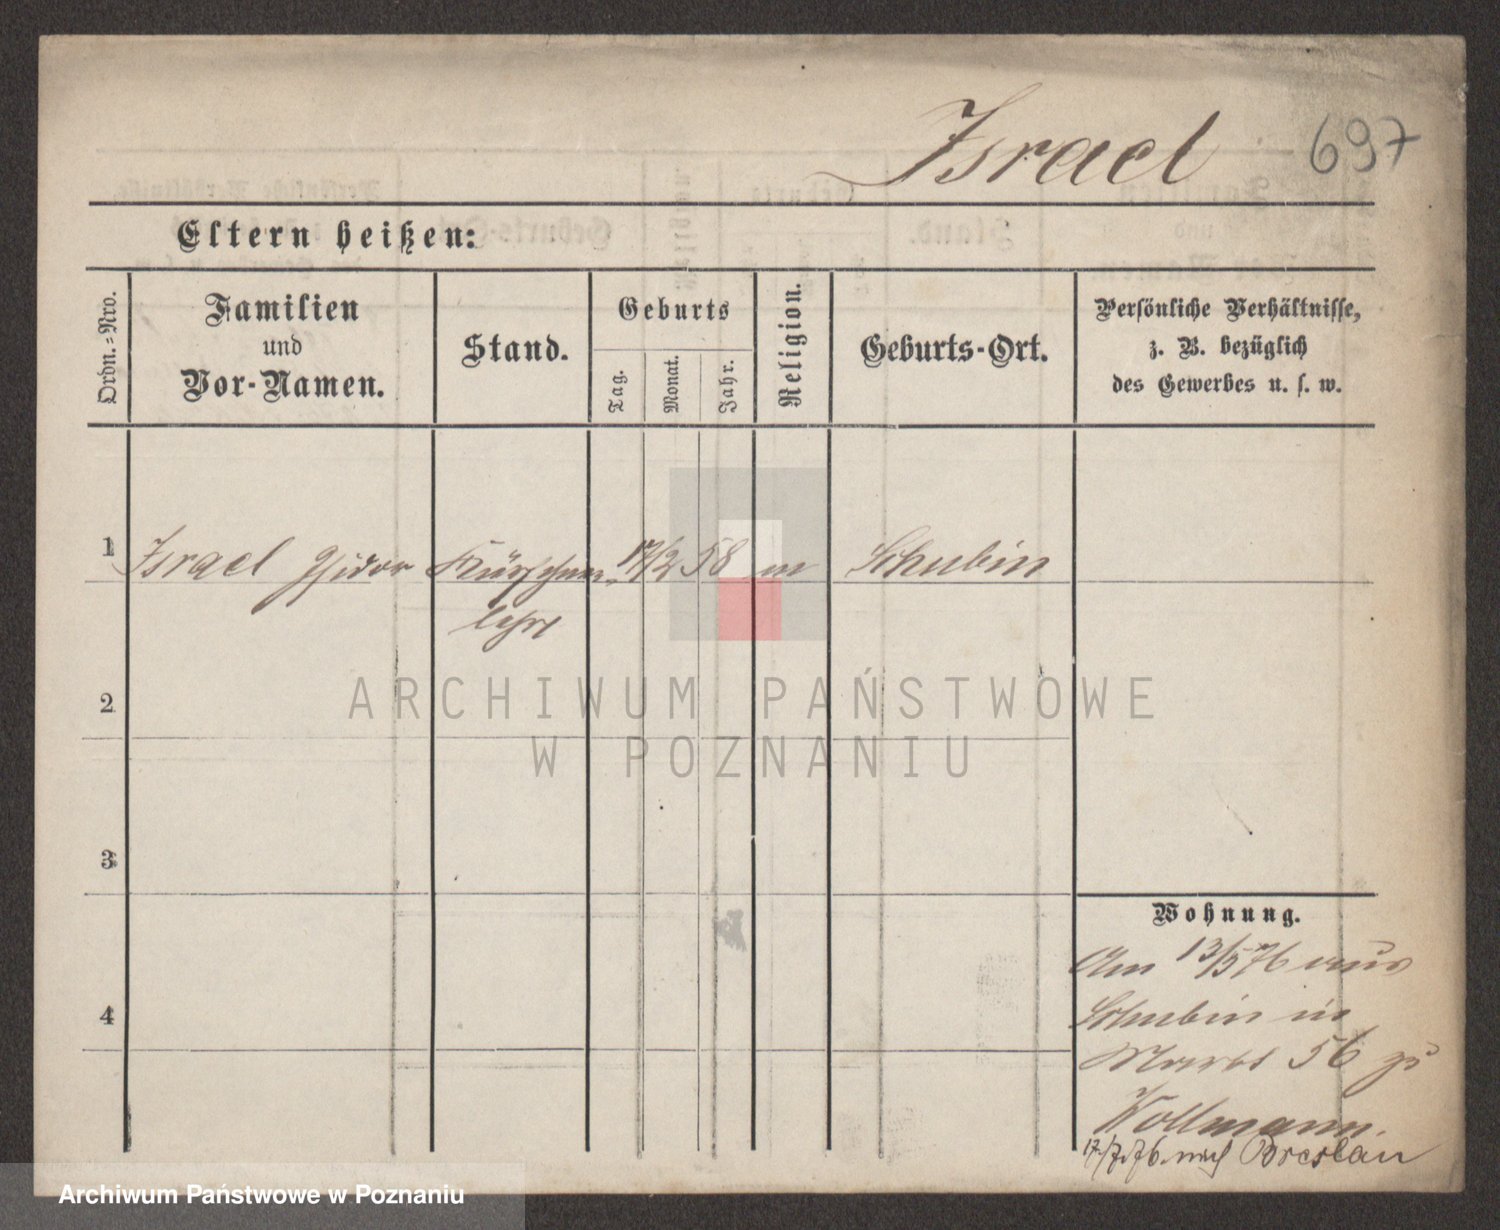 Israel 697
Eltern heißen:
Ordn.-Nro.
Familien
und
Vor-Namen.
Stand.
Geburts
Tag.
Monat.
Jahr.
Religion.
Geburts-Ort.
Persönliche Verhältnisse,
z. B. bezüglich
des Gewerbes u. s. w.
1 Israel Isidor Kürschner 17/2 58 m Schubin
lehrl
2
3
4
Wohnung.
Am 13/5 76 aus
Schubin in
Markt 56 zu
Wollmann.
17/7.76. nach Breslau
ARCHIWUM PAŃSTWOWE
W POZNANIU
Archiwum Państwowe w Poznaniu